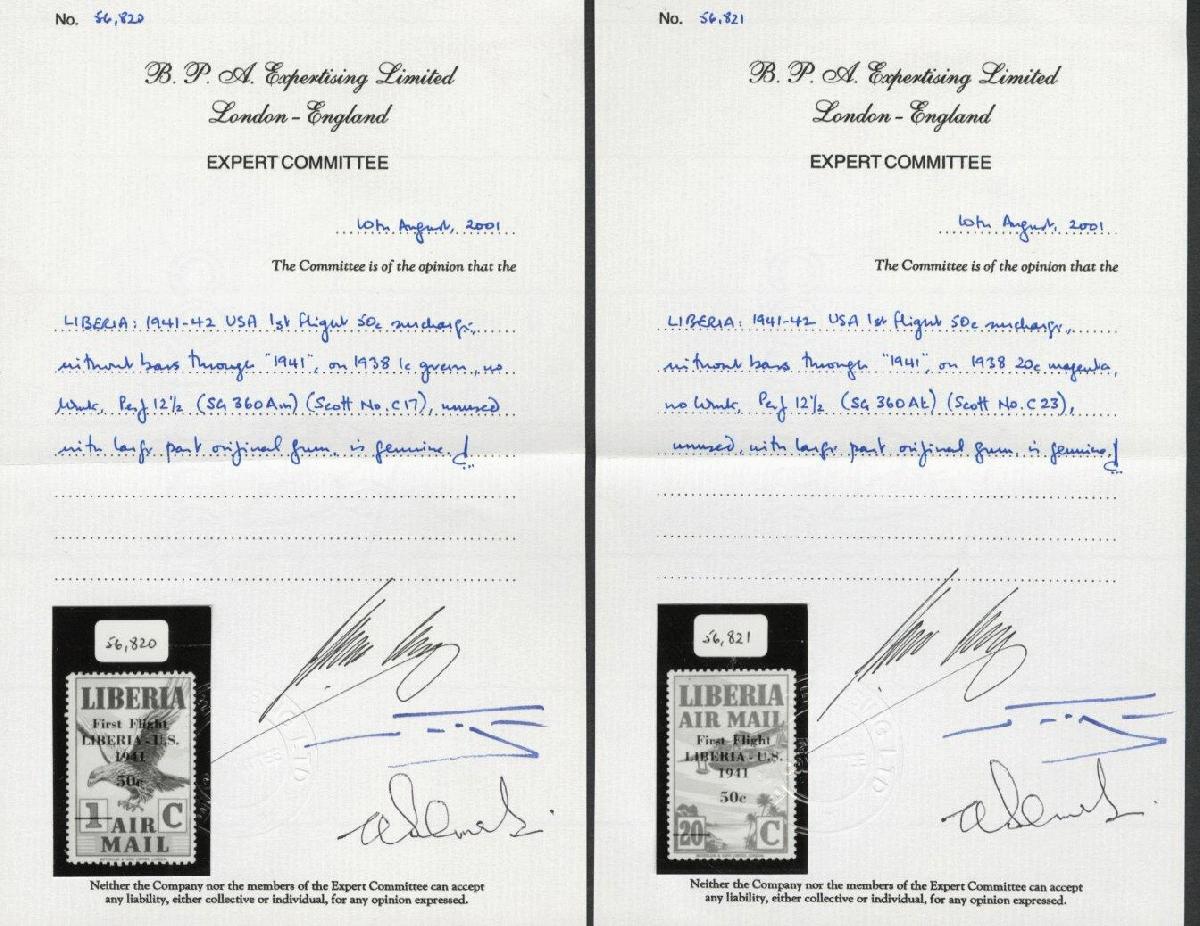 No. 56,820
B. P. A. Expertising Limited
London - England
EXPERT COMMITTEE
10th August, 2001
The Committee is of the opinion that the
LIBERIA: 1941-42 USA 1st flight 50c surcharge,
without bars through "1941", on 1938 1c green, no
Wmk, Perf 12½ (SG 360Am) (Scott No. C17), unused
with large part original gum, is genuine.
56,820
LIBERIA
First Flight
LIBERIA - U.S.
1941
50c
1 C
AIR
MAIL
Neither the Company nor the members of the Expert Committee can accept
any liability, either collective or individual, for any opinion expressed.
No. 56,821
B. P. A. Expertising Limited
London - England
EXPERT COMMITTEE
10th August, 2001
The Committee is of the opinion that the
LIBERIA: 1941-42 USA 1st flight 50c surcharge,
without bars through "1941", on 1938 20c magenta,
no Wmk, Perf 12½ (SG 360At) (Scott No. C23),
unused, with large part original gum, is genuine.
56,821
LIBERIA
AIR MAIL
First Flight
LIBERIA - U.S.
1941
50c
20 C
LTD
Neither the Company nor the members of the Expert Committee can accept
any liability, either collective or individual, for any opinion expressed.